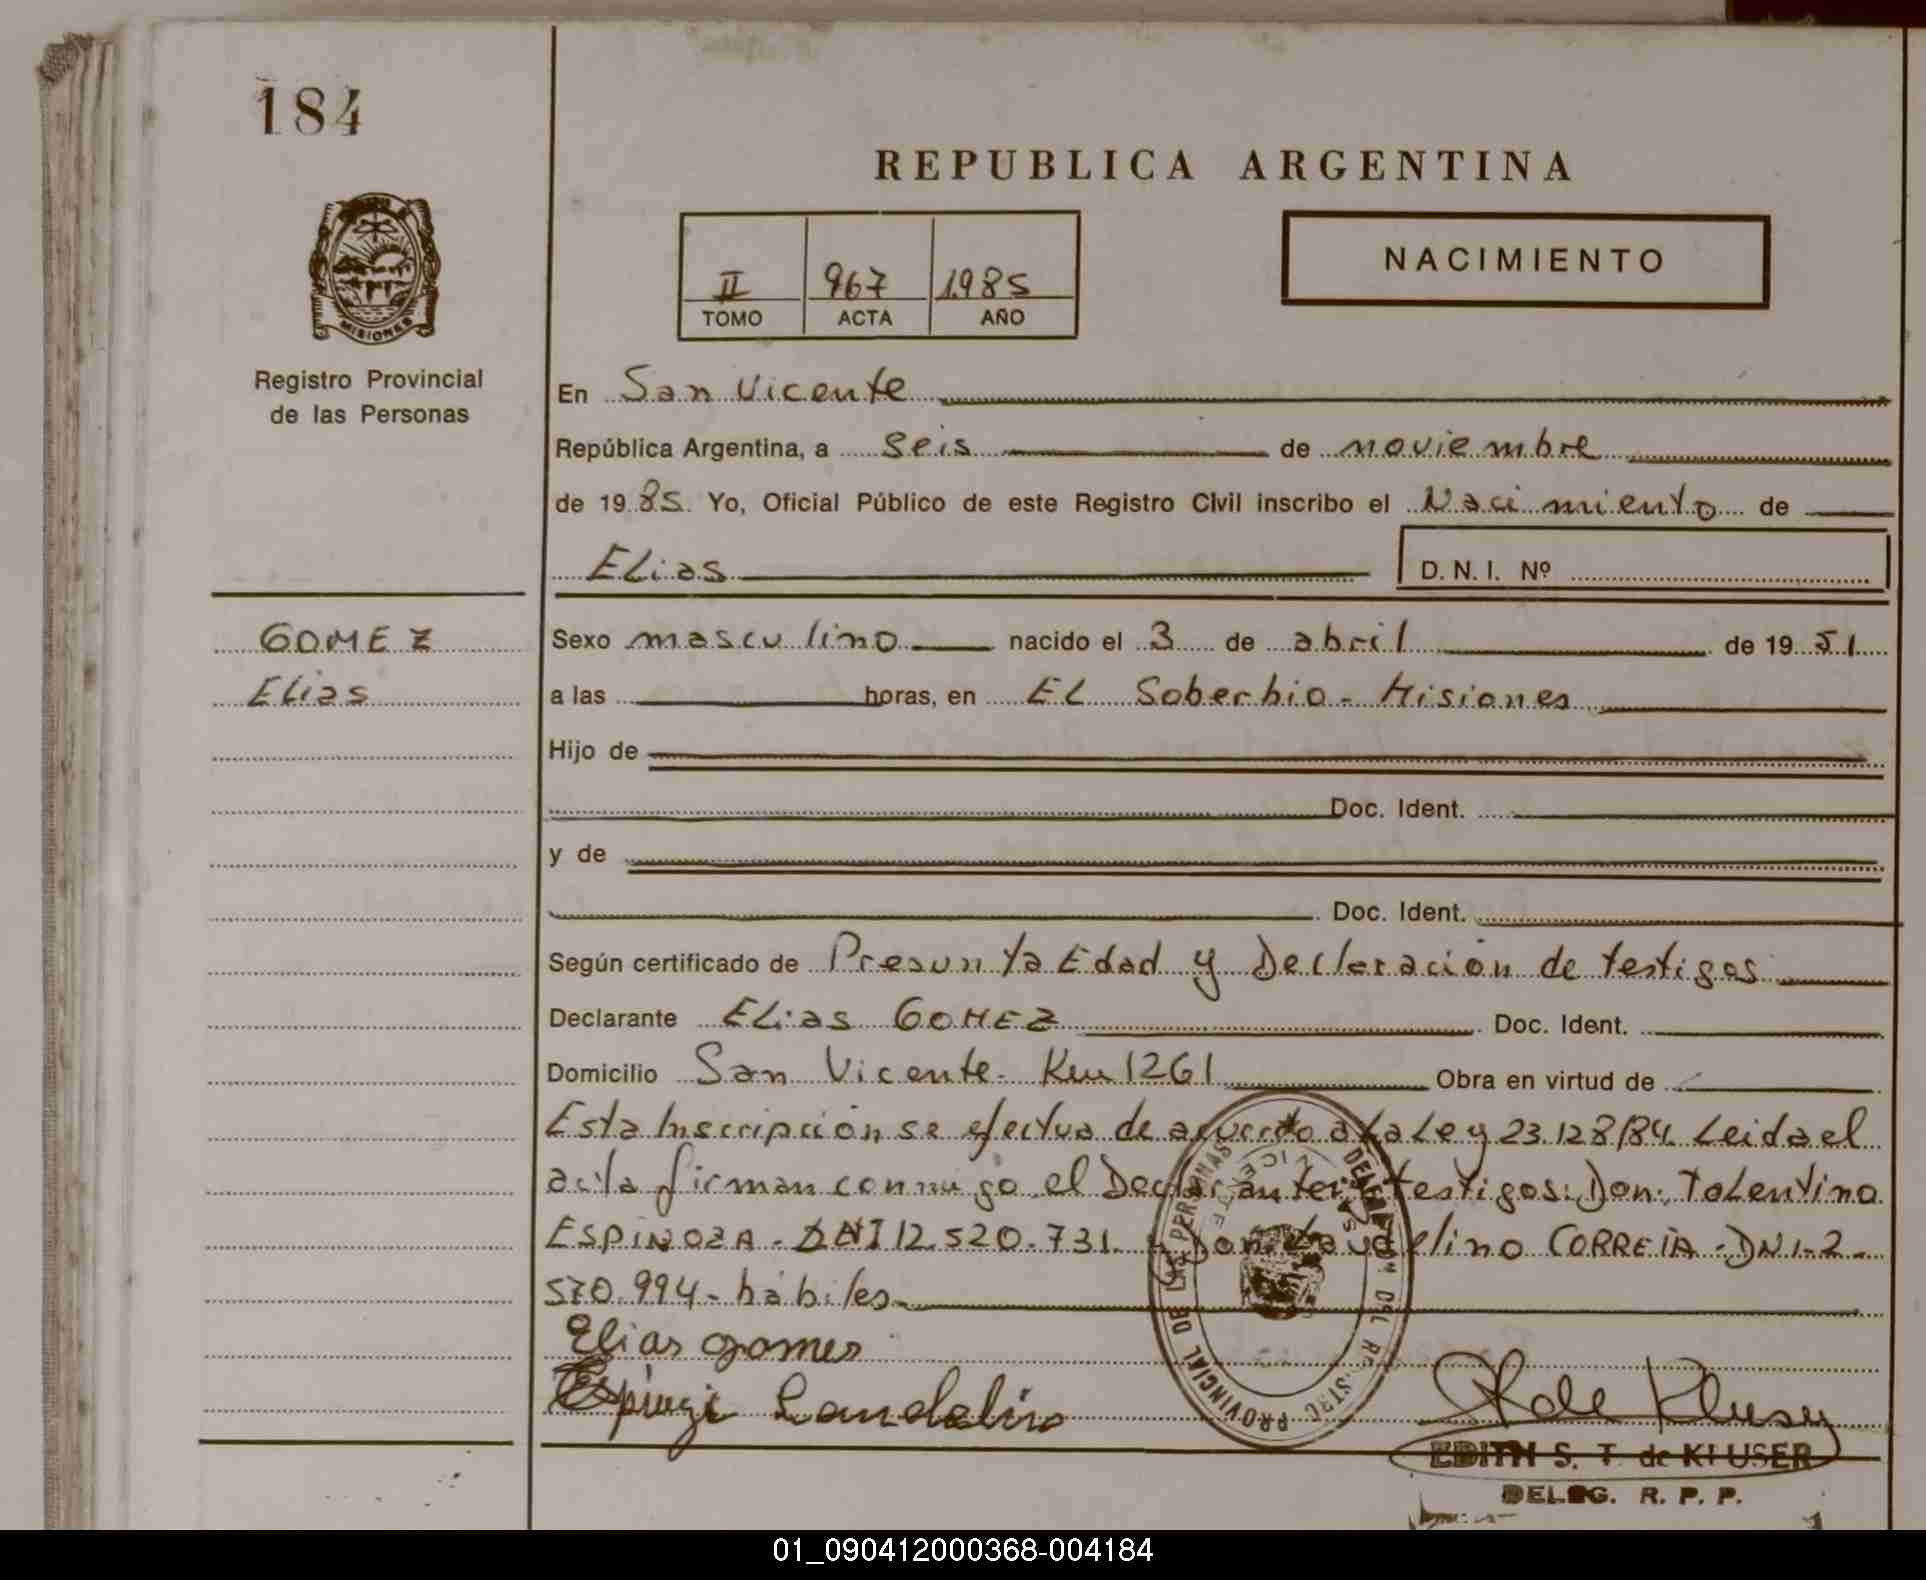 184
REPUBLICA ARGENTINA
NACIMIENTO
II 967 1985
TOMO ACTA AÑO
MISIONES
Registro Provincial
de las Personas
En San Vicente
República Argentina, a seis de noviembre
de 1985. Yo, Oficial Público de este Registro Civil inscribo el Nacimiento de
Elias D. N. I. Nº
GOMEZ
Elias
Sexo masculino nacido el 3 de abril de 1951
a las horas, en EL Soberbio - Misiones
Hijo de
Doc. Ident.
y de
Doc. Ident.
Según certificado de Presunta Edad y Declaración de testigos
Declarante ELias GOMEZ Doc. Ident.
Domicilio San Vicente - Km 1261 Obra en virtud de
Esta Inscripción se efectua de acuerdo a La Ley 23.128/84. Leida el
acta firman conmigo el Declarante y testigos: Don: ToLentino
ESPINOZA - DNI 12.520.731. y Don Laudelino CORREIA - DNI - 2.
570.994 - hábiles
Elias gomes
Landelino
DELEGACION DEL REGISTRO PROVINCIAL DE LAS PERSONAS
SAN VICENTE
EDITH S. T. de KLUSER
DELEG. R. P. P.
01_090412000368-004184